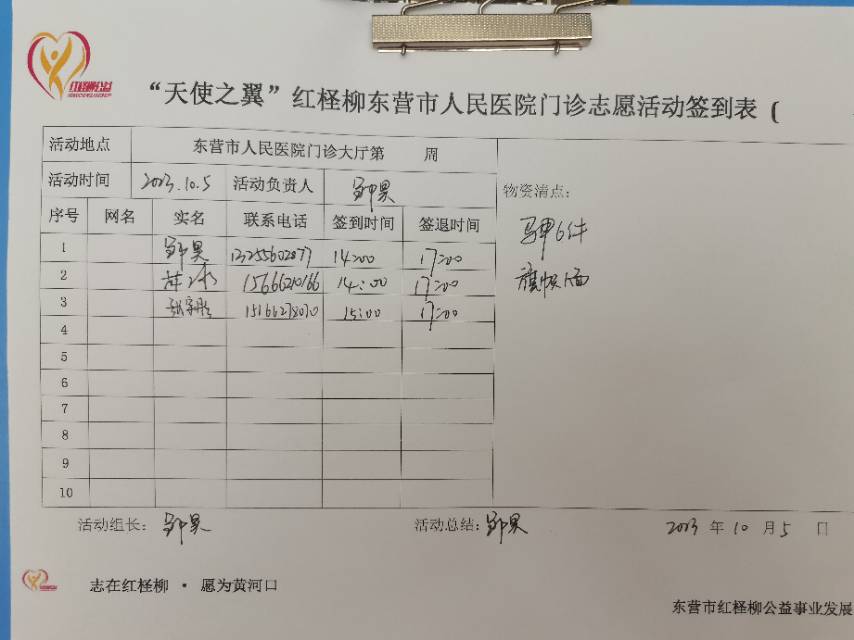 红柽柳公益
“天使之翼”红柽柳东营市人民医院门诊志愿活动签到表(
活动地点 东营市人民医院门诊大厅第 周
活动时间 2023.10.5 活动负责人
物资清点:
序号 网名 实名 联系电话 签到时间 签退时间
马甲6件
1 13255602877 14:00 17:00
2 15666210166 14:00 17:00
旗帜1面
3 张宇彤 15166278070 15:00 17:00
4
5
6
7
8
9
10
活动组长: 活动总结: 2023 年 10 月 5 日
志在红柽柳 · 愿为黄河口
东营市红柽柳公益事业发展